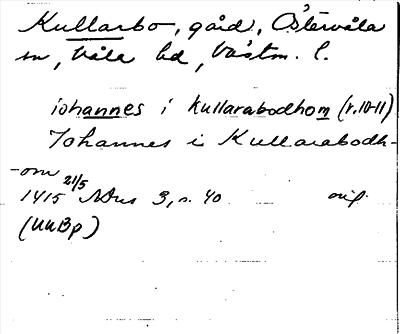 Kullarbo, gård, Östervåla
sn, Våla hd, Västm. l.
iohannes i kullarabodhom (r. 10-11)
Johannes i Kullarabodh-
-om
1415 21/5 NMus 3, s. 40 orig.
(UUBp)